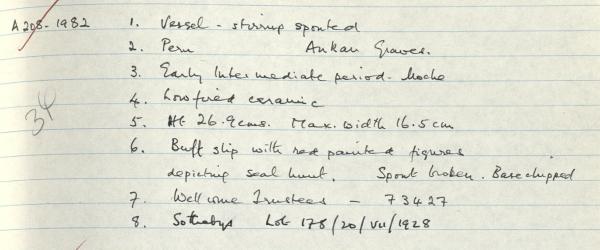 A208-1982 1. Vessel - stirrup spouted
2. Peru Ankan Graves.
3. Early Intermediate period - Moche
4. Low fired ceramic
5. Ht 26.9cms. Max. width 16.5cm
6. Buff slip with red painted figures
depicting seal hunt. Spout broken. Base chipped
34
7. Wellcome Trustees - 73427
8. Sothebys Lot 178/20/VII/1928